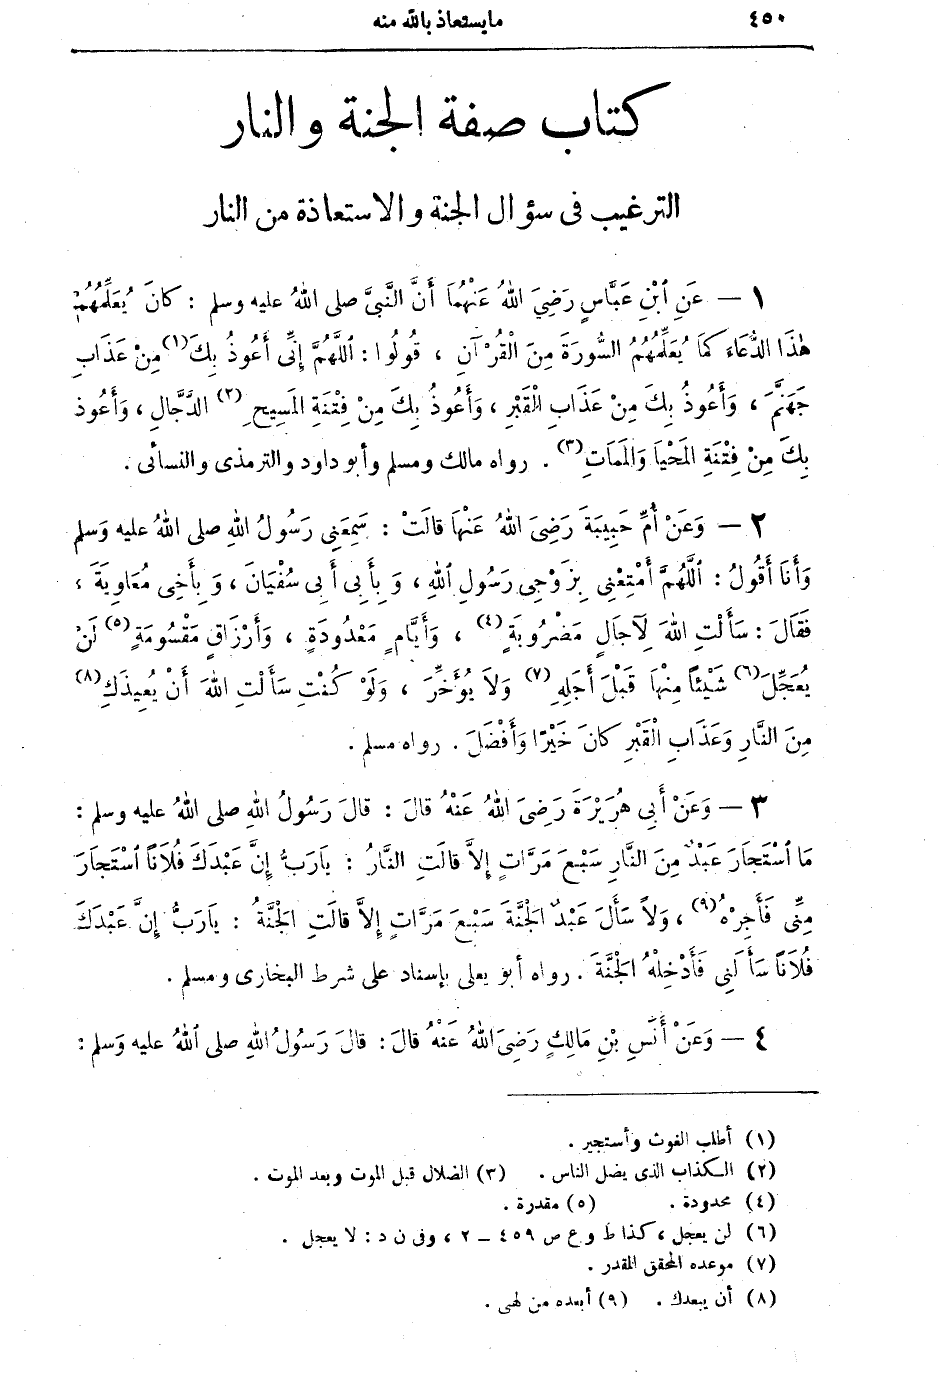 ٤٥٠ مايستعاذ بالله منه
كتاب صفة الجنة والنار
الترغيب فى سؤال الجنة والاستعاذة من النار
١ — عَنِ ٱبْنِ عَبَّاسٍ رَضِيَ اللهُ عَنْهُمَا أَنَّ النَّبِيَّ صلى اللهُ عليه وسلم : كانَ يُعَلِّمُهُمْ
هٰذَا الدُّعَاءَ كمَا يُعَلِّمُهُمُ السُّورَةَ مِنَ الْقُرْآنِ ، قُولُوا : اَللَّهُمَّ إِنِّى أَعُوذُ بِكَ(١) مِنْ عَذَابِ
جَهَنَّمَ ، وَأَعُوذُ بِكَ مِنْ عَذَابِ الْقَبْرِ ، وَأَعُوذُ بِكَ مِنْ فِتْنَةِ المَسِيحِ (٢) الدَّجَّالِ ، وَأَعُوذُ
بِكَ مِنْ فِتْنَةِ المَحْيَا وَالمَمَاتِ(٣) . رواه مالك ومسلم وأبو داود والترمذى والنسائى .
٢ — وَعَنْ أُمِّ حَبِيبَةَ رَضِيَ اللهُ عَنْهَا قالَتْ : سَمِعَنِي رَسُولُ اللهِ صلى اللهُ عليه وَسلم
وَأَنَا أَقُولُ : اَللَّهُمَّ أَمْتِعْنِى بِزَوْجِى رَسُولِ اللهِ ، وَ بِأَبِى أَبِى سُفْيَانَ ، وَ بِأَخِى مُعَاوِيَةَ ،
فَقَالَ : سَأَلْتِ اللهَ لِآجَالٍ مَضْرُوبَةٍ(٤) ، وَأَيَّامٍ مَعْدُودَةٍ ، وَأَرْزَاقٍ مَقْسُومَةٍ(٥) لَنْ
يُعَجِّلَ(٦) شَيْئًا مِنْهَا قَبْلَ أَجَلِهِ(٧) وَلاَ يُؤَخِّرَ ، وَلَوْ كُنْتِ سَأَلْتِ اللهَ أَنْ يُعِيذَكِ(٨)
مِنَ النَّارِ وَعَذَابِ الْقَبْرِ كانَ خَيْرًا وَأَفْضَلَ . رواه مسلم .
٣ — وَعَنْ أَبِي هُرَيْرَةَ رَضِيَ اللهُ عَنْهُ قالَ : قالَ رَسُولُ اللهِ صلى اللهُ عليه وسلم :
مَا ٱسْتَجَارَ عَبْدٌ مِنَ النَّارِ سَبْعَ مَرَّاتٍ إِلاَّ قالَتِ النَّارُ : يَارَبُّ إِنَّ عَبْدَكَ فُلاَنًا ٱسْتَجَارَ
مِنِّى فَأَجِرْهُ(٩) ، وَلاَ سَأَلَ عَبْدٌ الْجَنَّةَ سَبْعَ مَرَّاتٍ إِلاَّ قالَتِ الْجَنَّةُ : يَارَبُّ إِنَّ عَبْدَكَ
فُلاَنًا سَأَلَنِى فَأَدْخِلْهُ الْجَنَّةَ . رواه أبو يعلى بإسناد على شرط البخارى ومسلم .
٤ — وَعَنْ أَنَسِ بْنِ مَالِكٍ رَضِيَ اللهُ عَنْهُ قالَ : قالَ رَسُولُ اللهِ صلى اللهُ عليه وَسلم :
(١) أطلب الغوث وأستجير .
(٢) الكذاب الذى يضل الناس . (٣) الضلال قبل الموت وبعد الموت .
(٤) محدودة . (٥) مقدرة .
(٦) لن يعجل ، كذا ط و ع ص ٤٥٩ – ٢ ، وفى ن د : لا يعجل .
(٧) موعده المحقق المقدر .
(٨) أن يبعدك . (٩) أبعده من لهى .